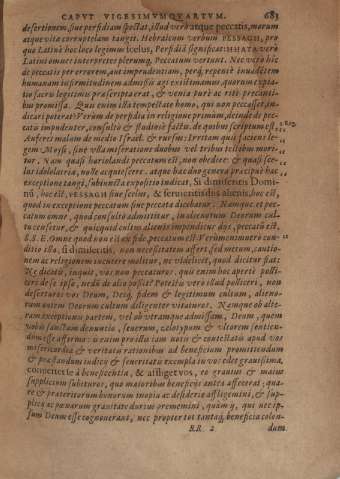 CAPVT VIGESIMVMQVARTVM. 683
desertionem, siue perfidiam spectat, istud verò atque peccatis, morum
atque vitæ corruptelam tangit. Hebraicum verbum PESSAGH, pro
quo Latinè hoc loco legimus scelus, Perfidiã significat: HHATA verò
Latini omnes interpretes plerumq, Peccatum vertunt. Nec verò hîc
de peccatis per errorem, aut imprudentiam,
humanam infirmitudinem admissis agi existimamus, quorum
tio sacris legitimis præscripta erat, & venia
bus promissa. Quis enim ista tempestate homo, qui non peccasset, in-
dicari poterat? Verùm de perfidia in religione primùm, deinde de pec-
catis impudenter, consultò & studiosè factis, de quibus scriptum est,
Auferes malum de medio Israel. & rursus: Irritam quis faciens le-
gem Moyse, sine vlla miseratione duobus vel tribus testibus mori-
tur. Nam quasi hariolandi peccatum est, non obedire: & quasi sce-
lus idololatriæ, nolle acquiescere. atque hac duo genera præcipuè hac
exceptione tangi, subiuncta expositio indicat, Si dimiseris Domi-
nũ, hoc est, PESSAGH siue scelus, & seruieritis diis alienis, hoc est,
quod in exceptione peccatum sine peccato dicebatur. Namque et pec-
catum omne, quod consultò admittitur, in alienorum Deorum cul-
tu censetur, & quicquid cultui alienis impenditur diis, peccatũ est.
S.S.E. Omne quod non est ex fide, peccatum est. Verùm
ditio ista, si dimiseritis, non necessitatem affert, sed metum, cautio-
nem ac religionem incutere molitur, ne videlicet, quod dicitur fiat:
Ne dicatis, inquit, vos non peccaturos. quis enim hoc aperte polli-
teri de se ipso, nedũ de aliis possit? Potestis verò istud polliceri, non
deserturos vos Deum, Deiq, fidem & legitimum cultum, alieno-
rum autem Deorum cultum diligenter vitaturos. Namque ob alte-
ram exceptionis partem, vel ob vtramque admissam, Deum, quem
vobis sanctum denuntio, seuerum, zelotypum & vltorem sentien-
dum esse affirmo: ac enim pro illa tam notis & contestatis apud vos
misericordiæ & veritatis rationibus ad beneficium promittendum
& præstandum iudicii & seueritatis exempla in vos edet grauissima,
conuertetur à beneficentia, & affliget vos, eo grauius & maius
supplicium subituros, quo maioribus beneficiis antea affecerat; qua-
re & præteritorum bonorum inopia ac desiderio affligemini, & sup-
pliciis ac pœnarum grauitate durius prememini, quàm ij, qui nec ip-
sum Deum esse cognouerant, nec propter tot tantaq, beneficia colen-
RR 2 dum